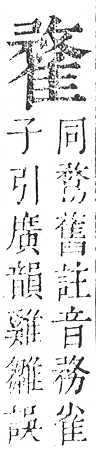 同鶩舊註音務雀
子引廣韻雞雛誤